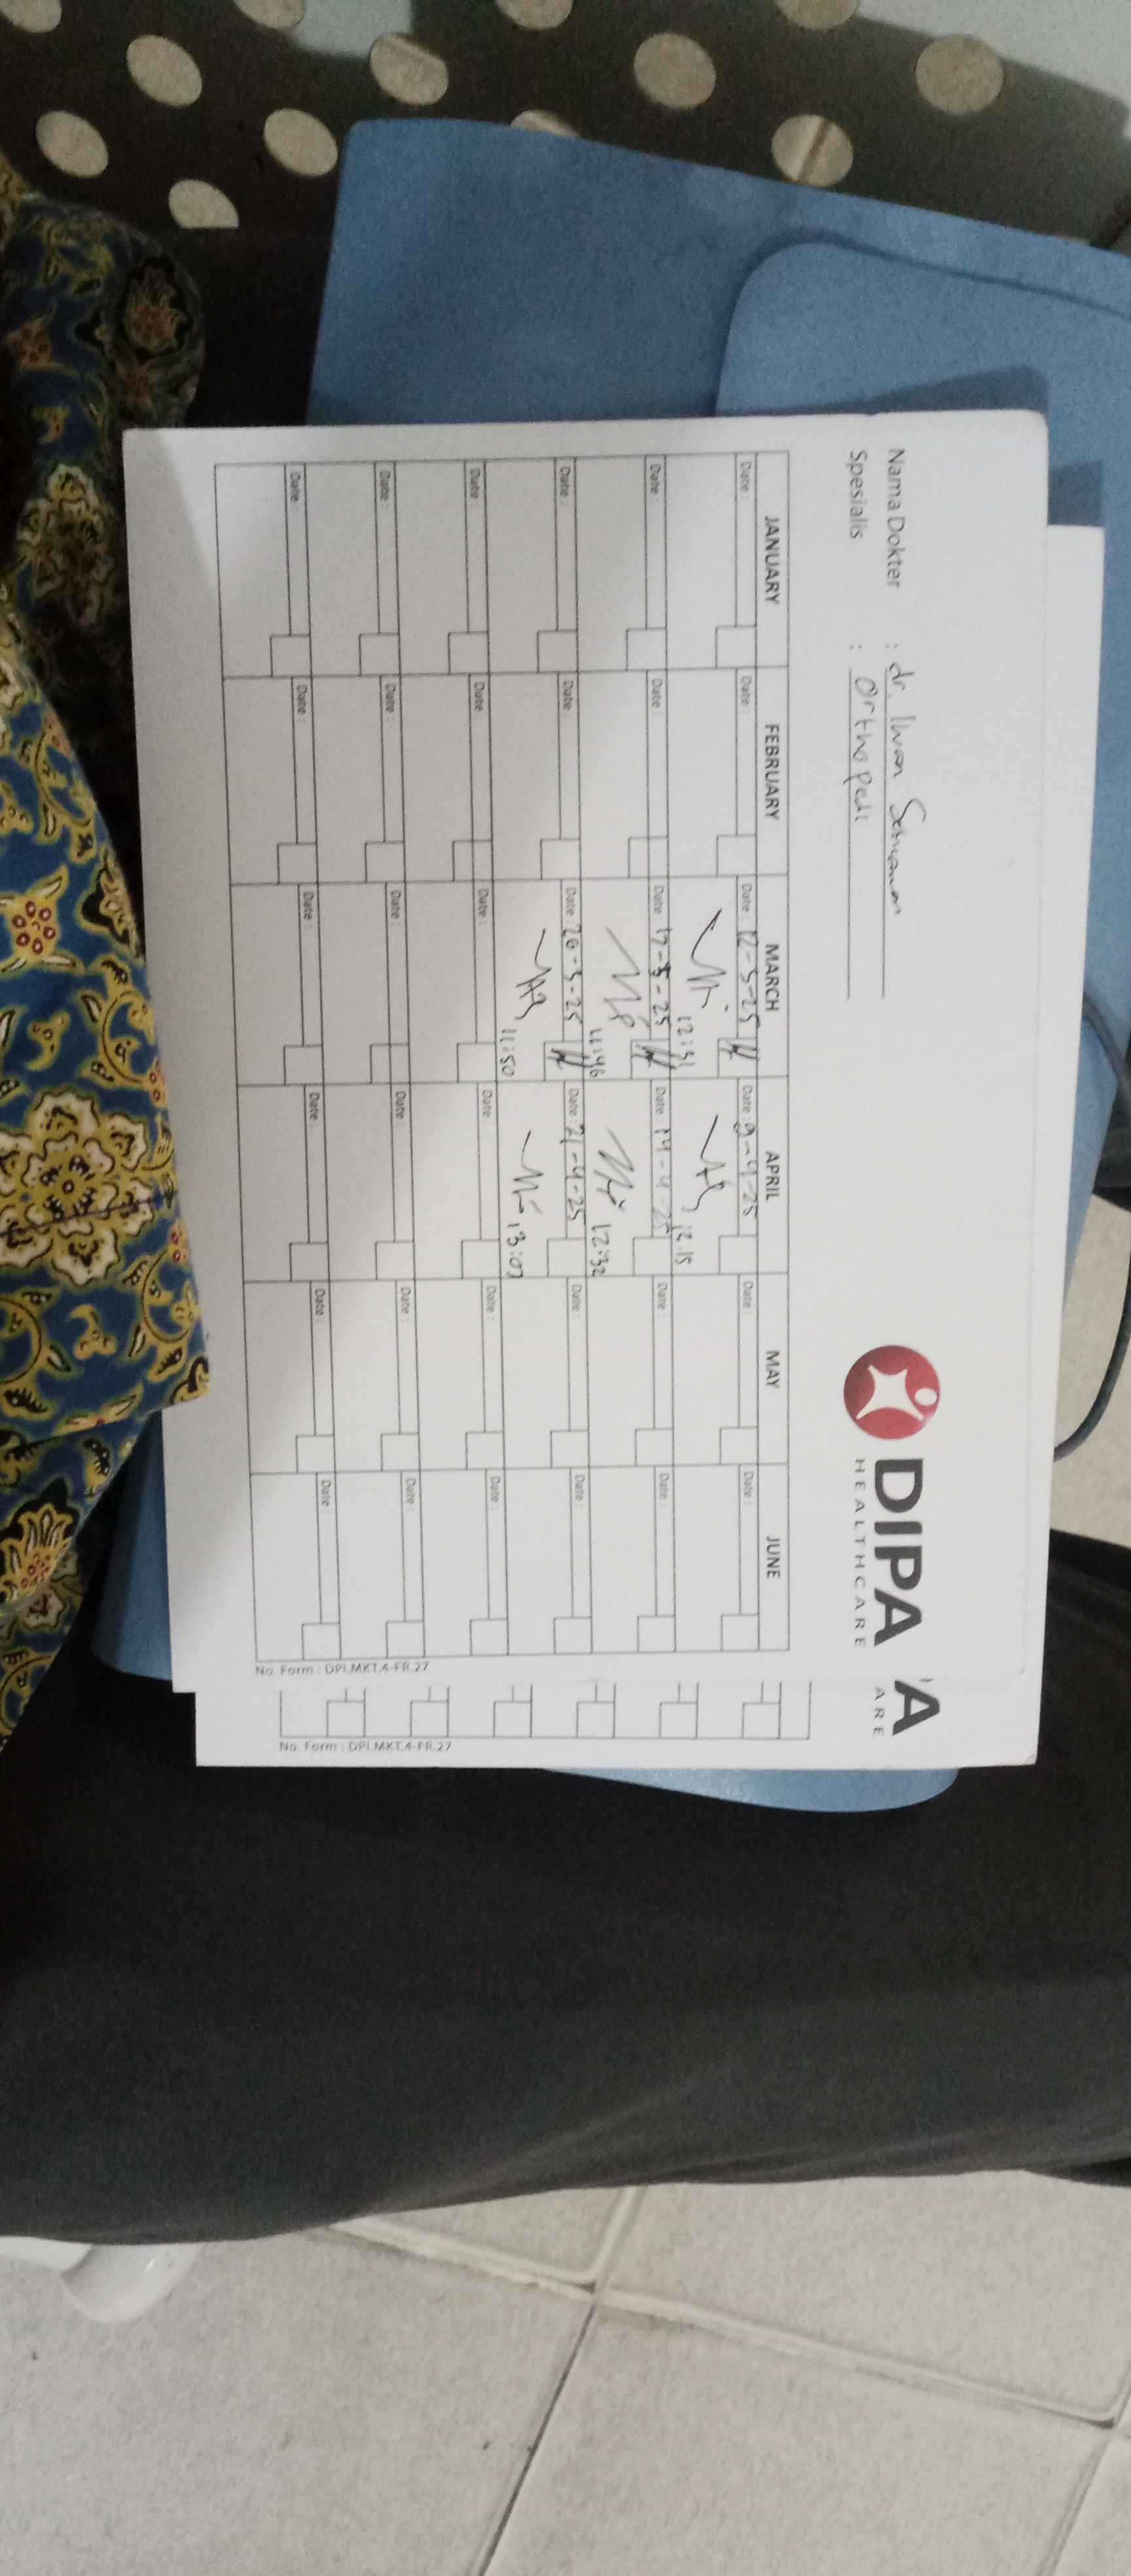 Nama Dokter : dr. Ihwan
Spesialis : Orthopedi
DIPA
HEALTHCARE
'A
ARE
JANUARY FEBRUARY MARCH APRIL MAY JUNE
Date : Date : Date : 12-3-25 Date : 9-4-25 Date : Date :
12:31 12.15
Date : Date : Date : 17-3-25 Date : 14-4-25 Date : Date :
11:46 12:32
Date : Date : Date : 26-3-25 Date : 21-4-25 Date : Date :
11:50 13:07
Date : Date : Date : Date : Date : Date :
Date : Date : Date : Date : Date : Date :
Date : Date : Date : Date : Date : Date :
No. Form : DPI.MKT.4-FR.27
No. Form : DPI.MKT.4-FR.27